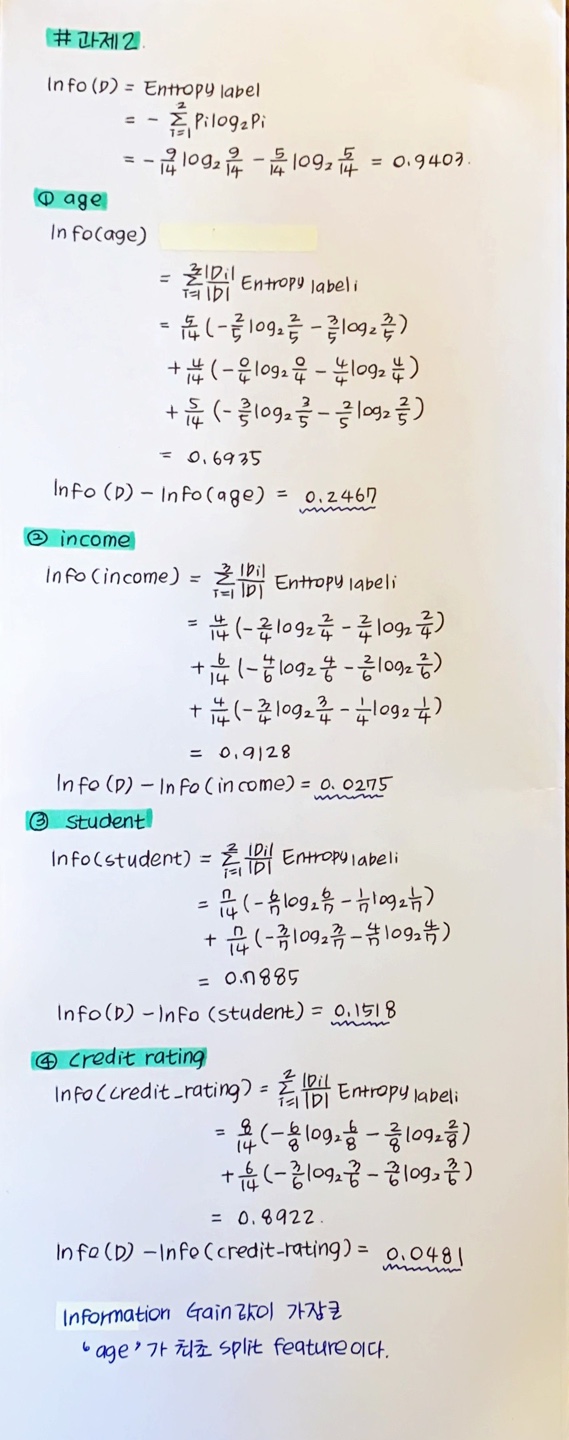 # 과제2.
Info(D) = Entropy label
= - Σ_{i=1}^{2} Pi log₂ Pi
= - 9/14 log₂ 9/14 - 5/14 log₂ 5/14 = 0.9403.
① age
Info(age)
= Σ_{i=1}^{3} |Di|/|D| Entropy label i
= 5/14 (- 2/5 log₂ 2/5 - 3/5 log₂ 3/5)
+ 4/14 (- 0/4 log₂ 0/4 - 4/4 log₂ 4/4)
+ 5/14 (- 3/5 log₂ 3/5 - 2/5 log₂ 2/5)
= 0.6935
Info (D) - Info(age) = 0.2467
② income
Info(income) = Σ_{i=1}^{3} |Di|/|D| Entropy label i
= 4/14 (- 2/4 log₂ 2/4 - 2/4 log₂ 2/4)
+ 6/14 (- 4/6 log₂ 4/6 - 2/6 log₂ 2/6)
+ 4/14 (- 3/4 log₂ 3/4 - 1/4 log₂ 1/4)
= 0.9128
Info (D) - Info(income) = 0.0275
③ student
Info(student) = Σ_{i=1}^{2} |Di|/|D| Entropy label i
= 7/14 (- 6/7 log₂ 6/7 - 1/7 log₂ 1/7)
+ 7/14 (- 3/7 log₂ 3/7 - 4/7 log₂ 4/7)
= 0.7885
Info(D) - Info (student) = 0.1518
④ credit rating
Info(credit_rating) = Σ_{i=1}^{2} |Di|/|D| Entropy label i
= 8/14 (- 6/8 log₂ 6/8 - 2/8 log₂ 2/8)
+ 6/14 (- 3/6 log₂ 3/6 - 3/6 log₂ 3/6)
= 0.8922.
Info(D) - Info(credit-rating) = 0.0481
Information Gain 값이 가장 큰
'age'가 최초 split feature이다.